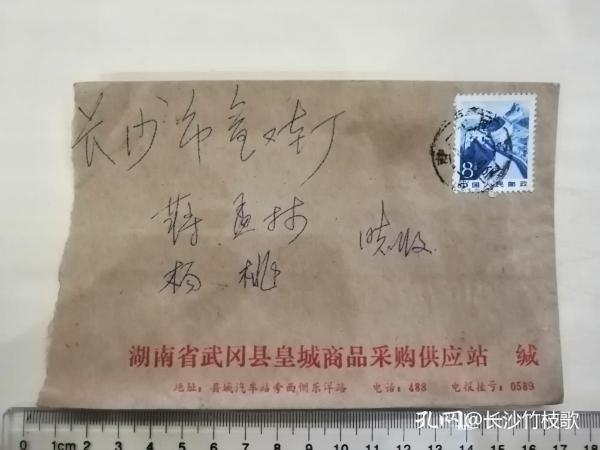 长沙市
8分
中国人民邮政
孟林
杨桃 收
湖南省武冈县皇城商品采购供应站 缄
地址:县城汽车站旁西侧乐洋路 电话:488 电报挂号:0589
0 1cm 2 3 4 5 6 7 8 9 10 11 12 13 14 15 16 17 18
孔网@长沙竹枝歌